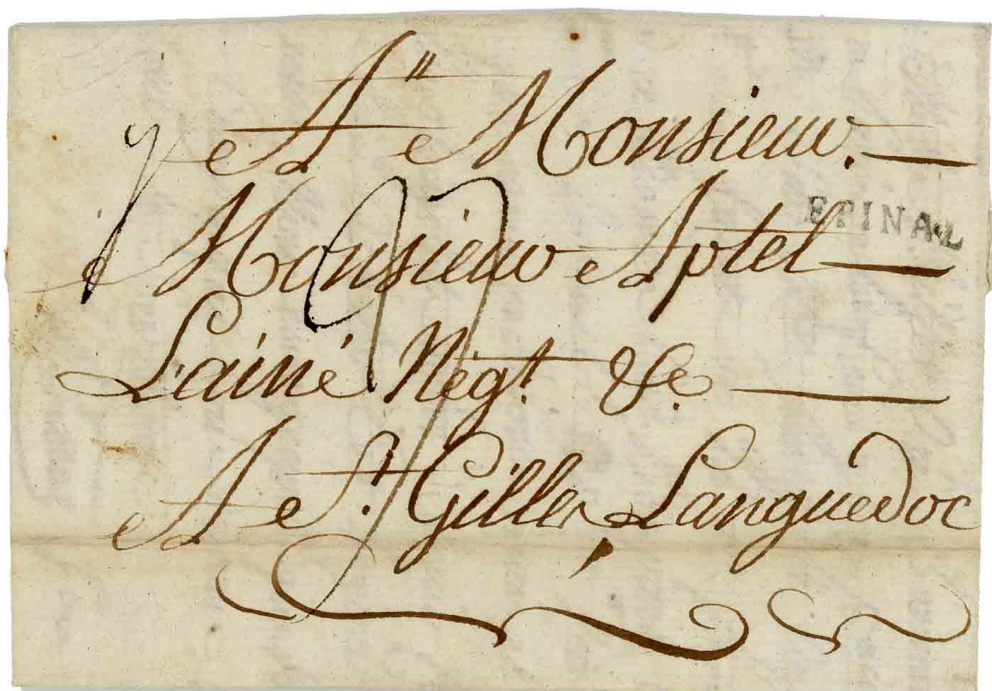 A Monsieur.
EPINAL
Monsieur Aptel
L'ainé Négt. &c.
A St. Gilles Languedoc